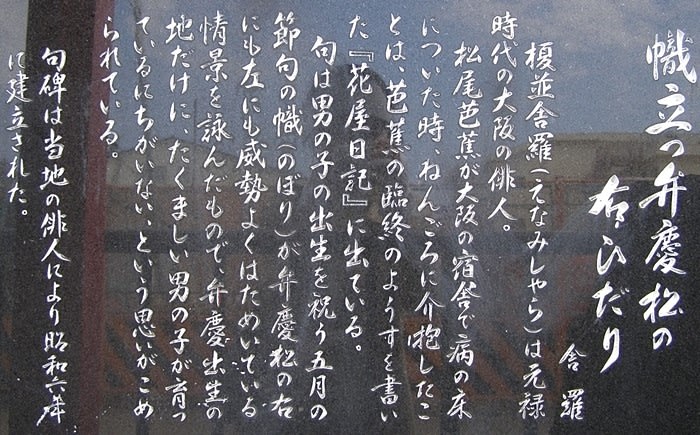 幟立つ弁慶松の
右ひだり
舎羅
榎並舎羅(えなみしやら)は元禄
時代の大阪の俳人。
松尾芭蕉が大阪の宿舎で病の床
についた時、ねんごろに介抱したこ
とは、芭蕉の臨終のようすを書い
た『花屋日記』に出ている。
句は男の子の出生を祝う五月の
節句の幟(のぼり)が弁慶松の右
にも左にも威勢よくはためいている
情景を詠んだもので、弁慶出生の
地だけに、たくましい男の子が育っ
ているにちがいない、という思いがこめ
られている。
句碑は当地の俳人により昭和六年
に建立された。